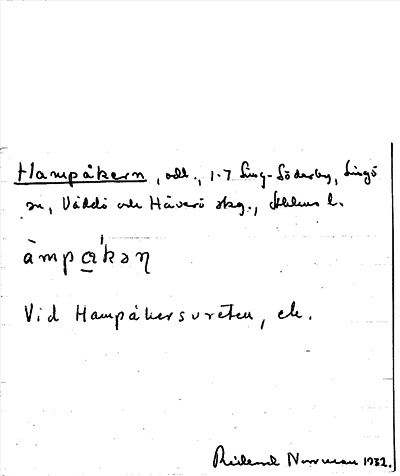 Hampåkern, odl., 1-7 Sing-Söderby, Singö
sn, Väddö och Häverö skg., Sthlms l.
àmpa̲'kən
Vid Hampåkersvreten, ek.
Rickard Norrman 1932.